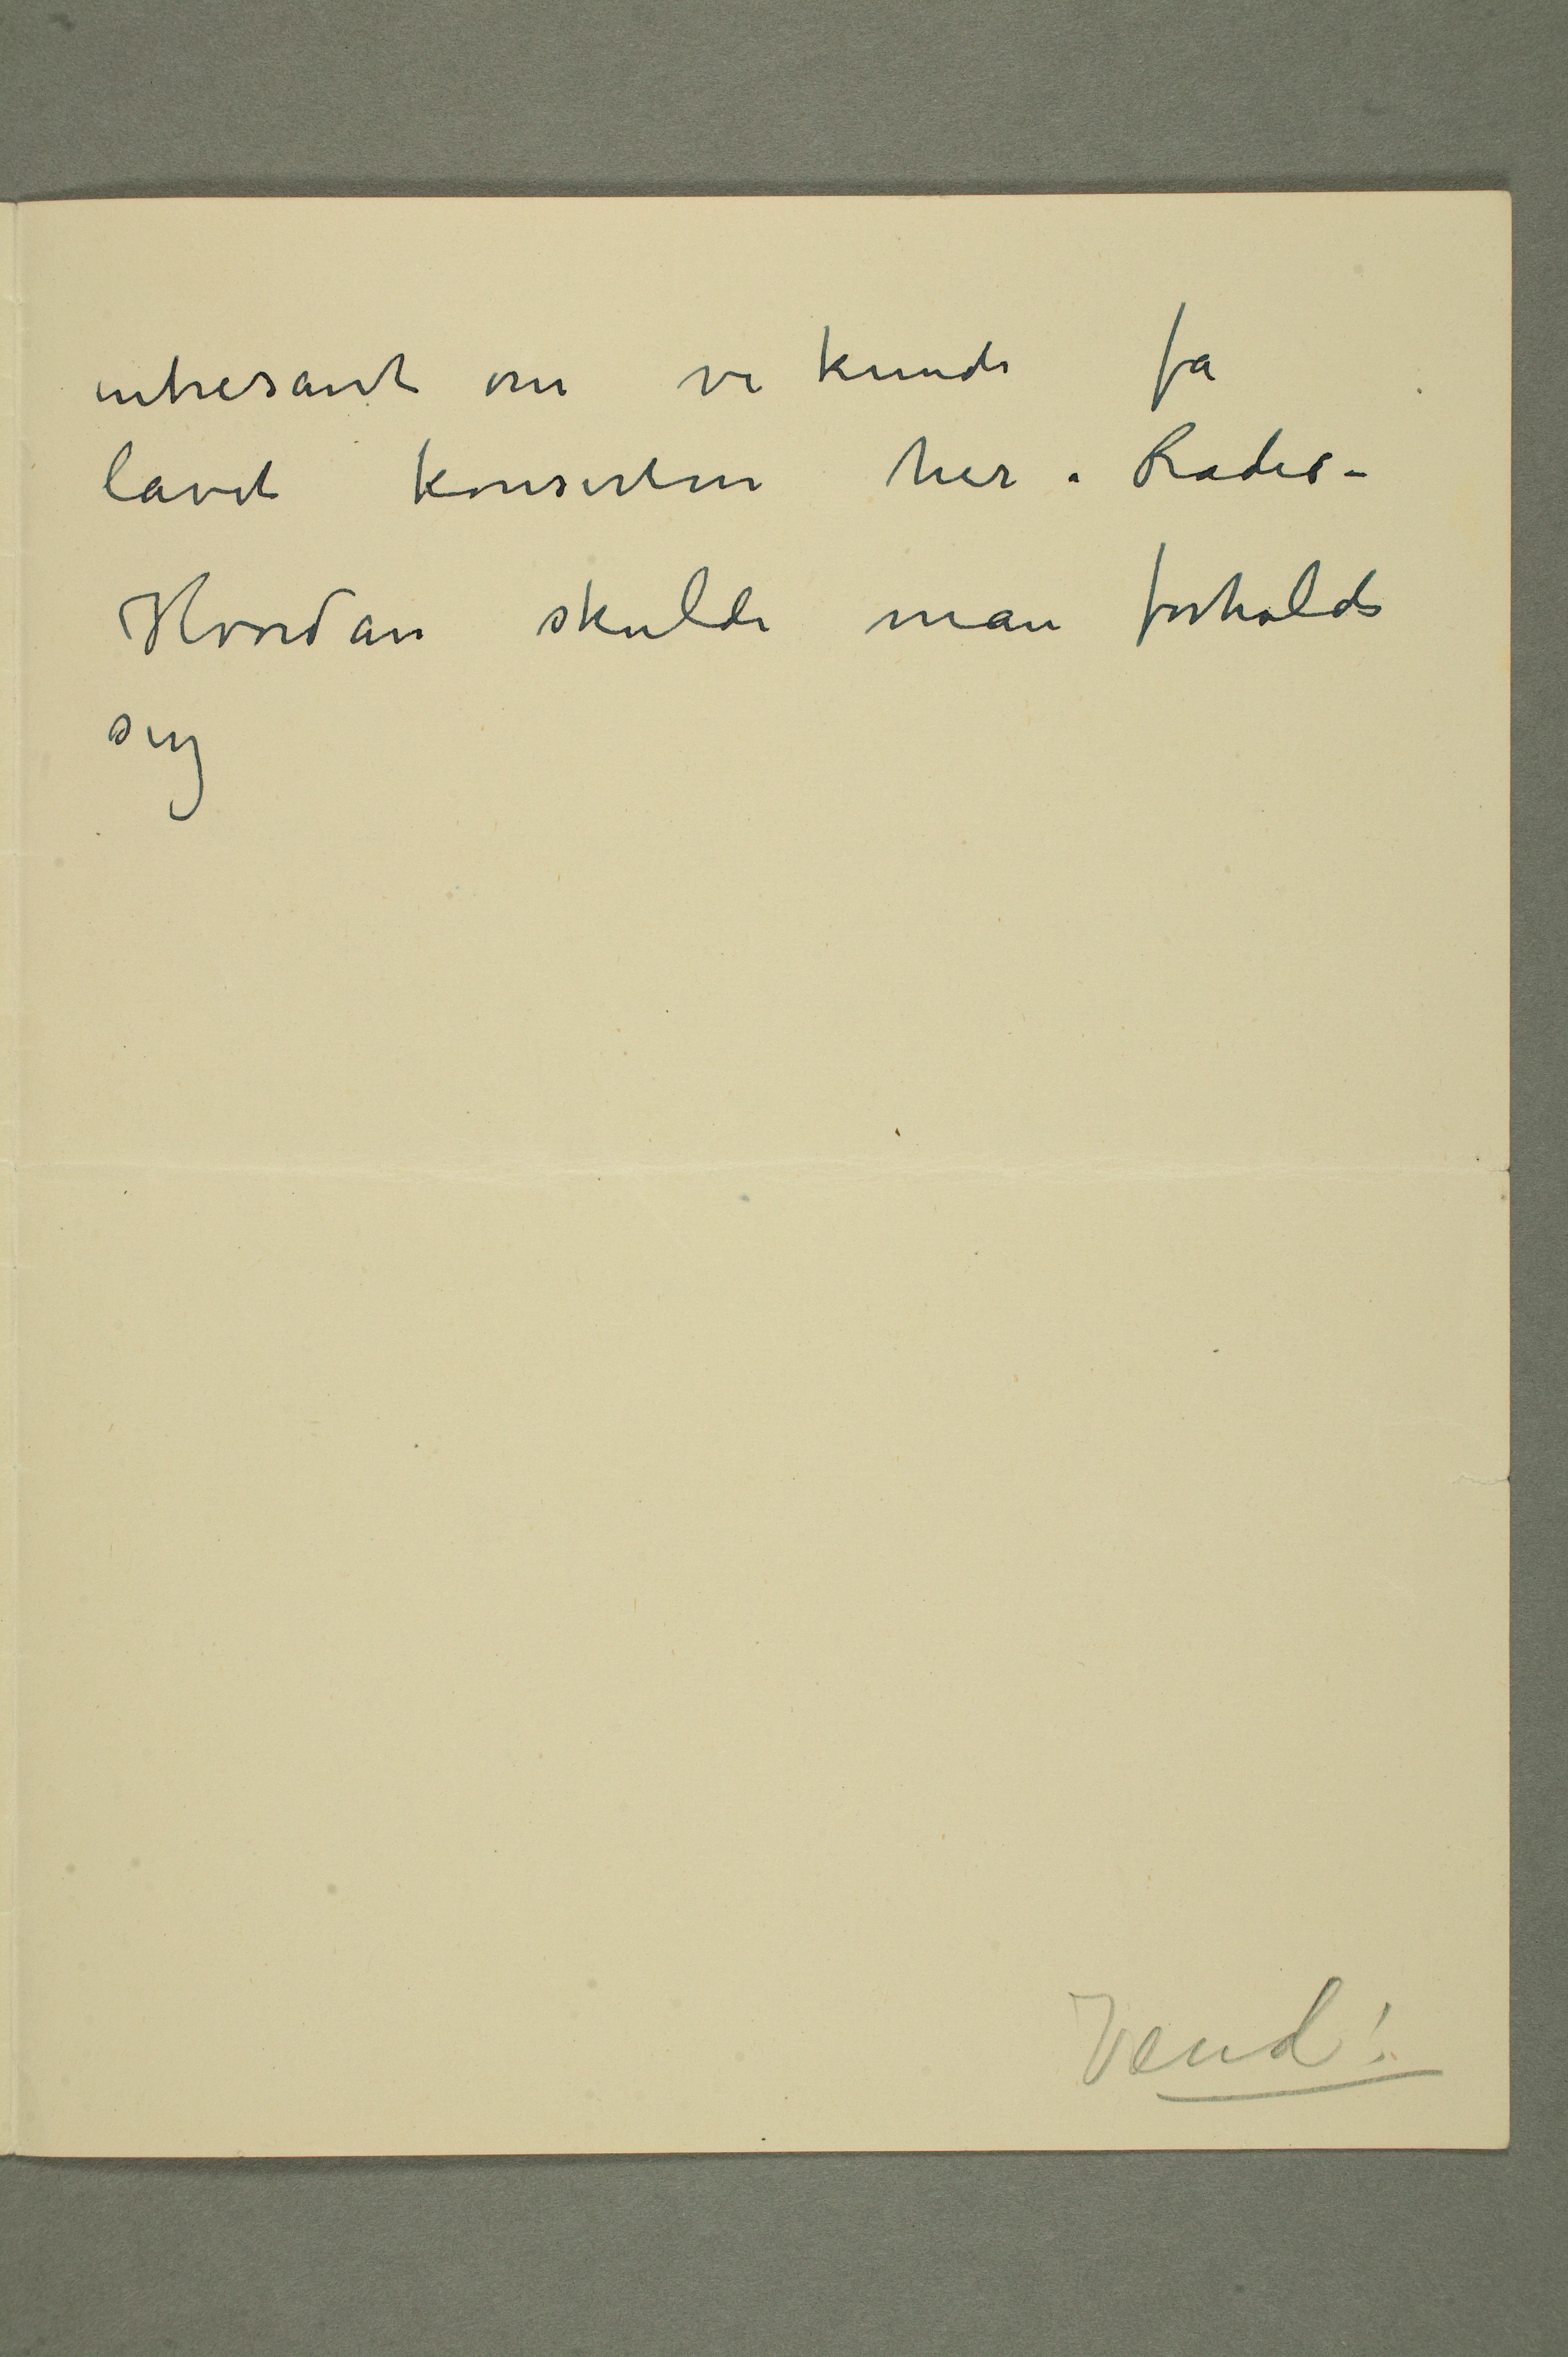 intresant om vi kunde fa
lavet konserten her i Radio –
Hvordan skulde man forholde
sig
Vend!